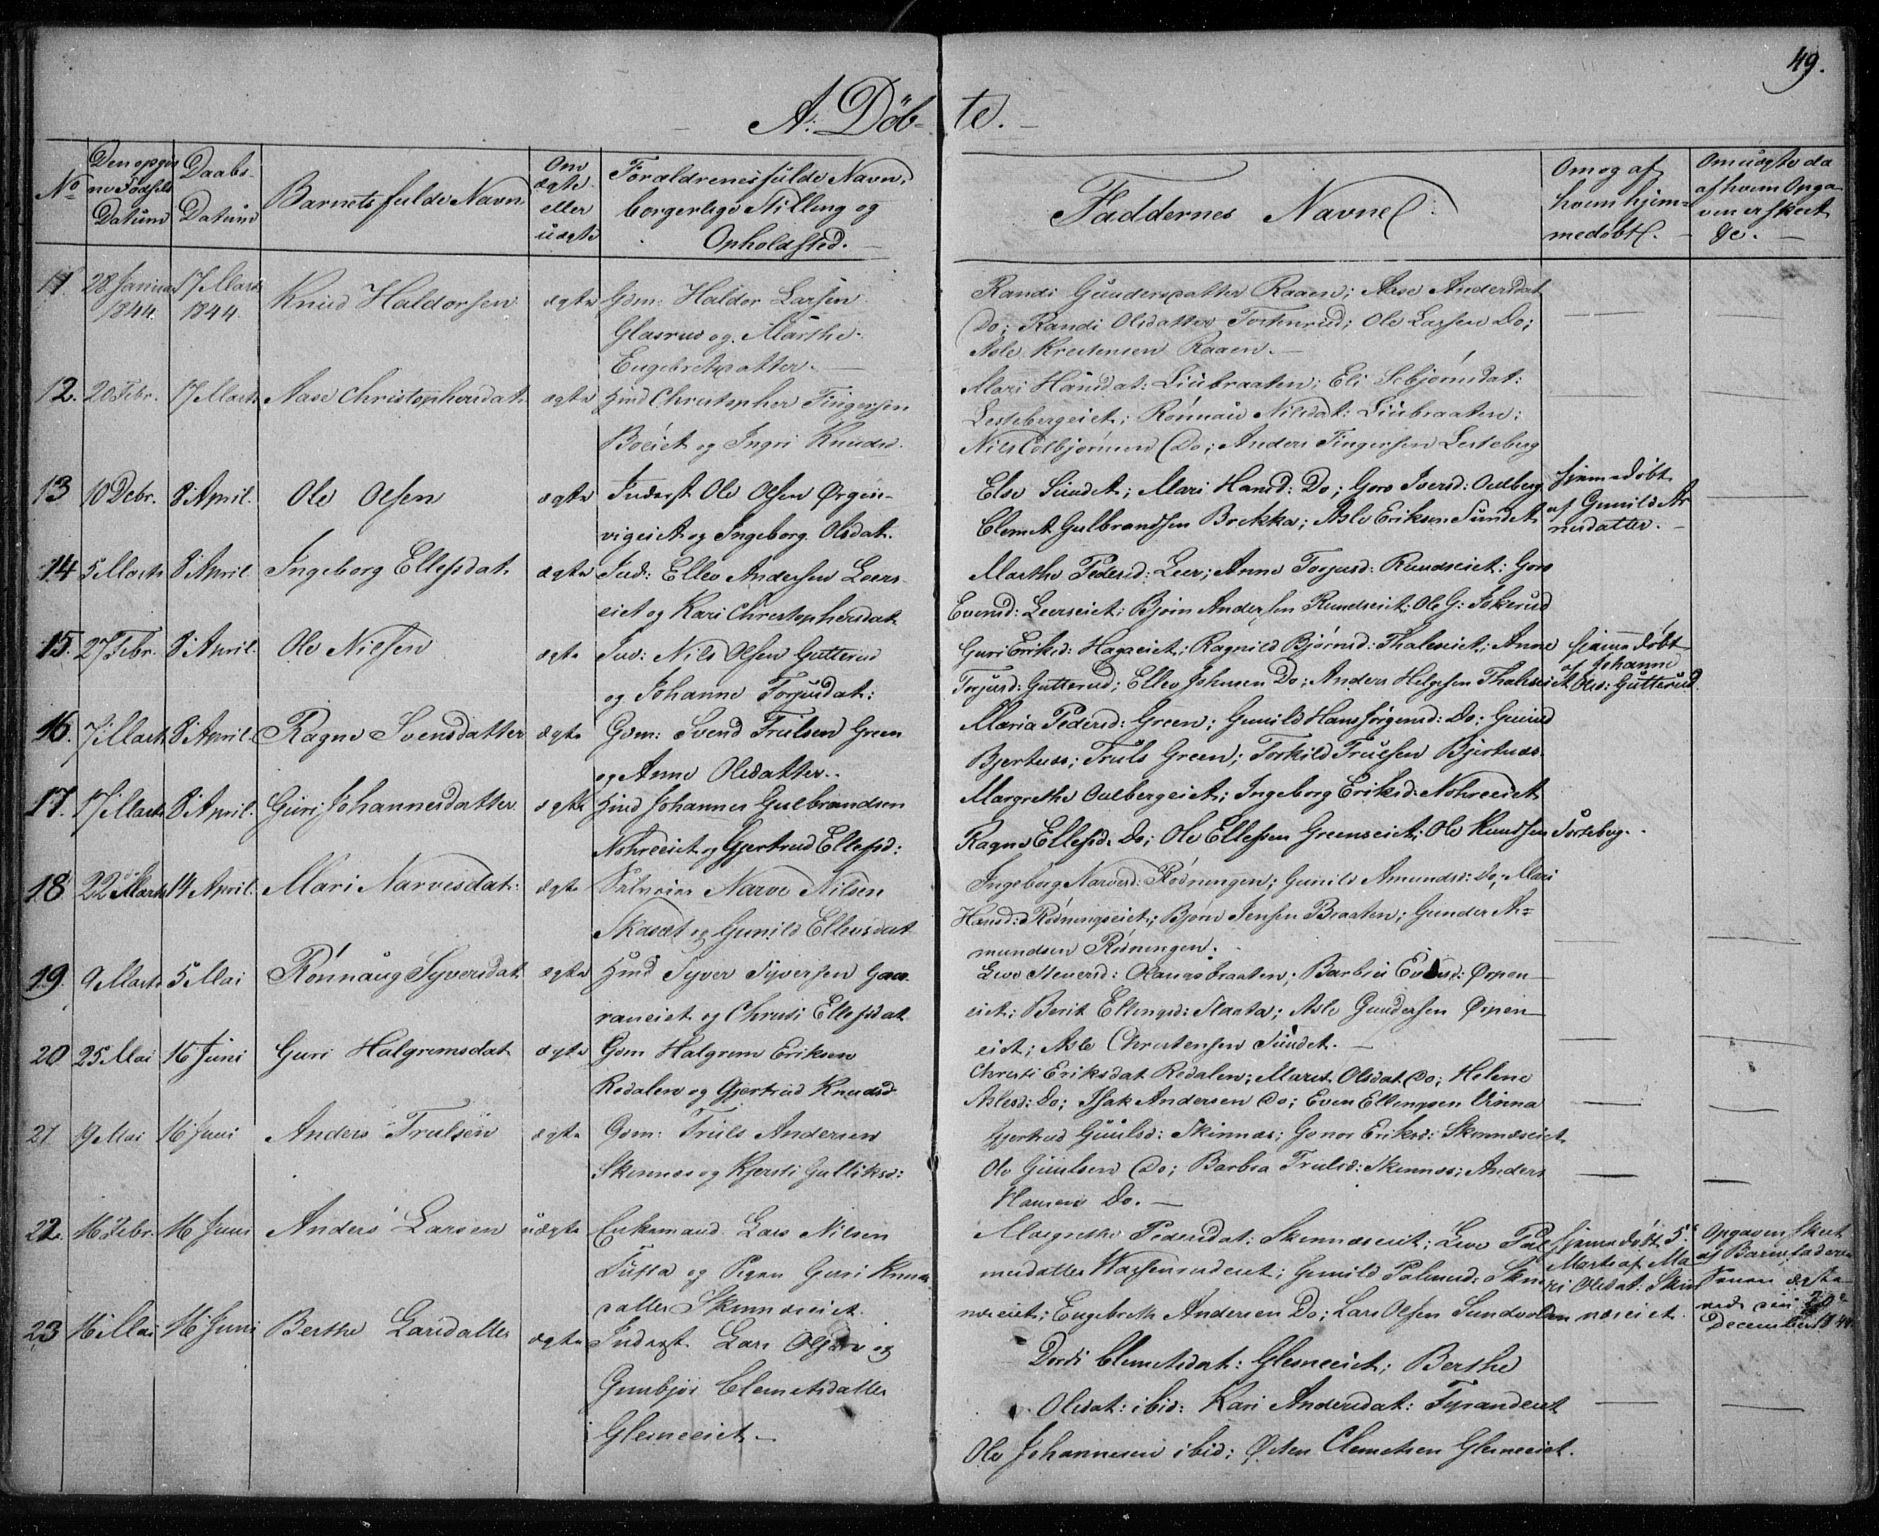 49.
A: Döb-te.
No
Den opgivne Fødsels Datum
Daabs-Datum
Barnets fulde Navn
Om ægte eller uægte
Forældrenes fulde Navn, borgerlige Stilling og Opholdsted.
Faddernes Navne
Om og af hvem hjemmedøbt.
Om uægte da af hvem Opgaven er skeet &c.
11. 28 Januar 1844. 17 Marts 1844. Knud Haldorsen ægte Gdm: Haldor Larsen
Glasrud og Marthe
Engebretsdatter.
Randi Gundersdatter Raaen; Aase Andersdat
Do; Randi Olsdatter Tostenrud; Ole Larsen Do;
Asle Krestensen Raaen.
12. 20 Febr. 17 Marts Aase Christophersdat. ægte Huusmd Christopher Fingersen
Böeiet og Ingri Knudsd.
Mari Hansdat: Liubraaten; Eli Sebjörnsdat:
Lestebergeiet; Rönnau Nilsdat: Liubraaten;
Nils Colbjörnsen Do; Anders Fingersen Lesteberg
13 10 Debr. 8 April. Ole Olsen ægte Inderst Ole Olsen Ørgen-
vigeiet og Ingeborg Olsdat.
Else Sundet; Mari Hansd: Do; Goro Iversd: Oulberg
Clemet Gulbrandsen Brekka; Asle Eriksen Sundet
Hjemmedøbt af Gunild Arnesdatter.
14 5 Marts 8 April Ingeborg Ellefsdat. ægte Ind: Ellev Andersen Leers-
eiet og Kari Christophersdat
Marthe Pedersd: Leer; Anne Torjusd: Rundseiet: Goro
Evensd: Leerseiet; Bjørn Andersen Rundseiet; Ole G: Iskerud
15. 27 Febr. 8 April. Ole Nilsen ægte Ind: Nils Olsen Gutterud
og Johanne Torjusdat:
Guri Eriksd: Hagaeiet; Ragnild Bjørnsd: Thaleseiet; Anne
Torjusd: Gutterud; Ellev Johnsen Do; Anders Helgesen Thaleseiet
Hjemmedøbt af Johanne Olsd: Gutterud.
16. 7 Marts 8 April. Ragne Svensdatter ægte Gdm: Svend Trulsen Green
og Anne Olesdatter.
Maria Pedersd: Green; Gunild Hans Jörgensd: Do; Gunild
Bjertnæs; Truls Green; Torkild Truelsen Bjertnæs.
17. 17 Marts 8 April. Guri Johannesdatter ægte Huusmd Johannes Gulbrandsen
Nohreeiet og Gjertrud Ellefsd:
Margrethe Oulbergeiet; Ingeborg Eriksd: Nohreeiet
Ragne Ellefsd: Do; Ole Ellefsen Greenseiet; Ole Knudsen Torteberg.
18 22 Marts 14 April. Mari Narvesdat: ægte Narve Nilsen
Skaset og Gunild Ellevsdat
Ingeborg Narvesd: Rödningen; Gunild Amundsd: Do; Mari
Hansd: Rödningseiet; Bjørn Jensen Braaten; Gunder A-
mundsen Rödningen.
19. 9 Marts 5 Mai Rönnaug Syversdat. ægte Huusmd Syver Syversen Gaa-
raneiet og Christi Ellefsdat
Live Steversd: Olaugsbraaten; Barbra Evensd: Ørpen-
eiet; Berit Ellingsd: Slaata; Asle Gundersen Ørpen-
eiet; Asle Christensen Sundet.
20 25 Mai 16 Juni Guri Halgrimsdat ægte Gdm Halgrim Eriksen
Redalen og Gjertrud Knudsd
Christi Eriksdat Redalen; Marit Olsdat Do; Helene
Aslesd: Do; Isak Andersen Do; Even Ellingsen Vinna
21 19 Mai 16 Juni Anders Trulsen ægte Gdm: Truls Andersen
Skinnes og Kjersti Gulliksd:
Gjertrud Guulsd: Skinnæs; Gonor Eriksd: Skinnæseiet
Ole Guulsen Do; Barbra Trulsd: Skinnæs; Anders
Hansen Do.
22. 16 Febr. 16 Juni Anders Larsen uægte Enkemand Lars Nilsen
Tufta og Pigen Guri Knuds-
datter Skinnæseiet.
Margrethe Pedersdat: Skinnæseiet; Live Pal-
mesdatter Wassenrudeiet; Gunild Palmesd: Skin-
næseiet; Engebreth Andersen Do; Lars Olsen Sundvolden
Hjemmedøbt 5 Marts af Mari Olesdat: Skinnæseiet
Opgaven skeet af Barnefaderen December 1844.
23 16 Mai 16 Juni Berthe Larsdatter ægte Inderst Lars Olsen og
Gunbjør Clemetsdatter
Glesneeiet.
Dordi Clemetsdat: Glesneeiet; Berthe
Olsdat: ibid: Kari Andersdat: Tyrandeiet
Ole Johannesen ibid; Østen Clemetsen Glesneeiet.